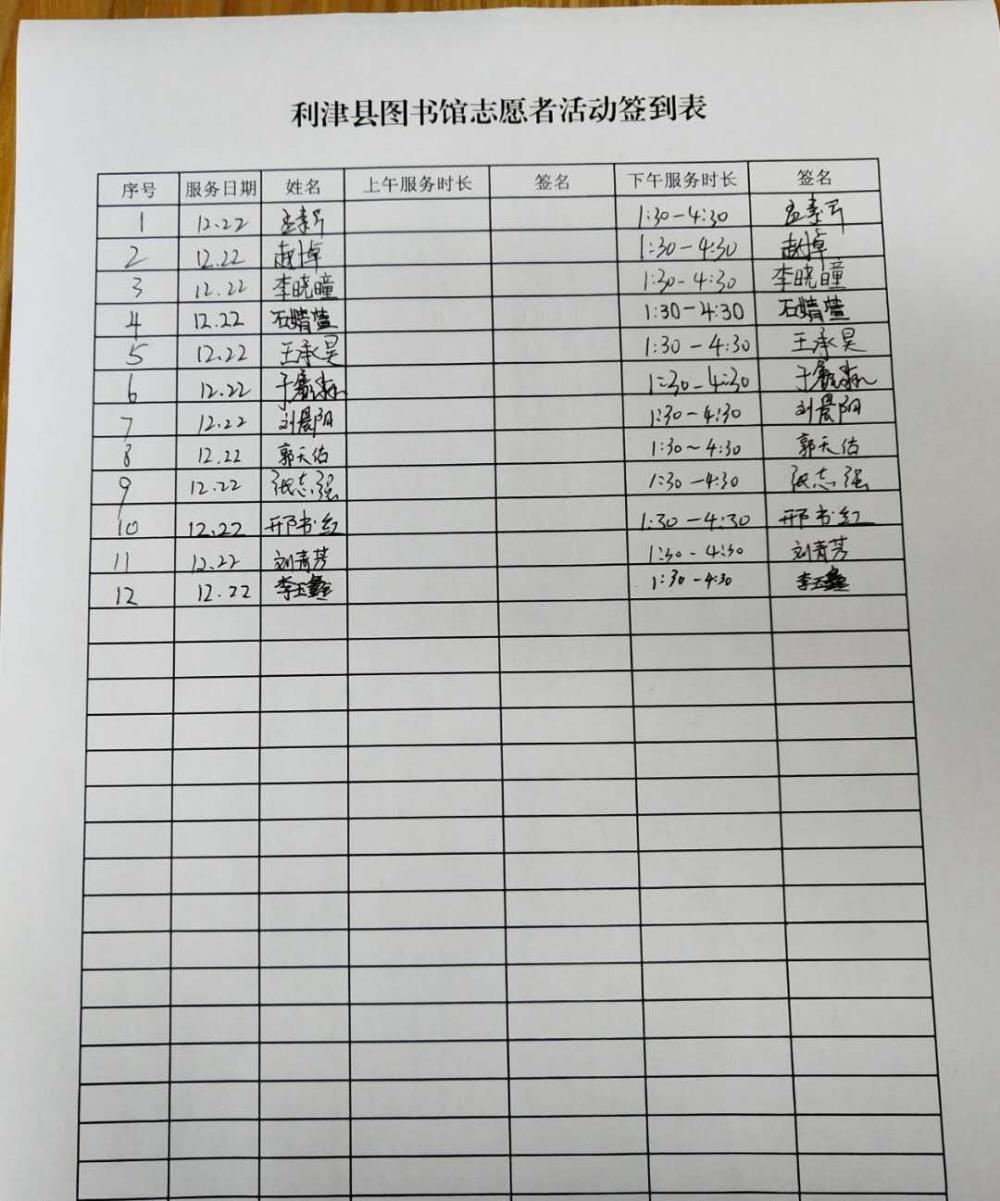 利津县图书馆志愿者活动签到表
序号 服务日期 姓名 上午服务时长 签名 下午服务时长 签名
1 12.22 1:30-4:30
2 12.22 赵焯 1:30-4:30 赵焯
3 12.22 李晓曈 1:30-4:30 李晓曈
4 12.22 石婧萱 1:30-4:30 石婧萱
5 12.22 王承昊 1:30-4:30 王承昊
6 12.22 1:30-4:30
7 12.22 刘晨阳 1:30-4:30 刘晨阳
8 12.22 郭天佑 1:30~4:30 郭天佑
9 12.22 张志强 1:30-4:30 张志强
10 12.22 邢书红 1:30-4:30 邢书红
11 12.22 刘青芳 1:30-4:30 刘青芳
12 12.22 李玉鑫 1:30-4:30 李玉鑫